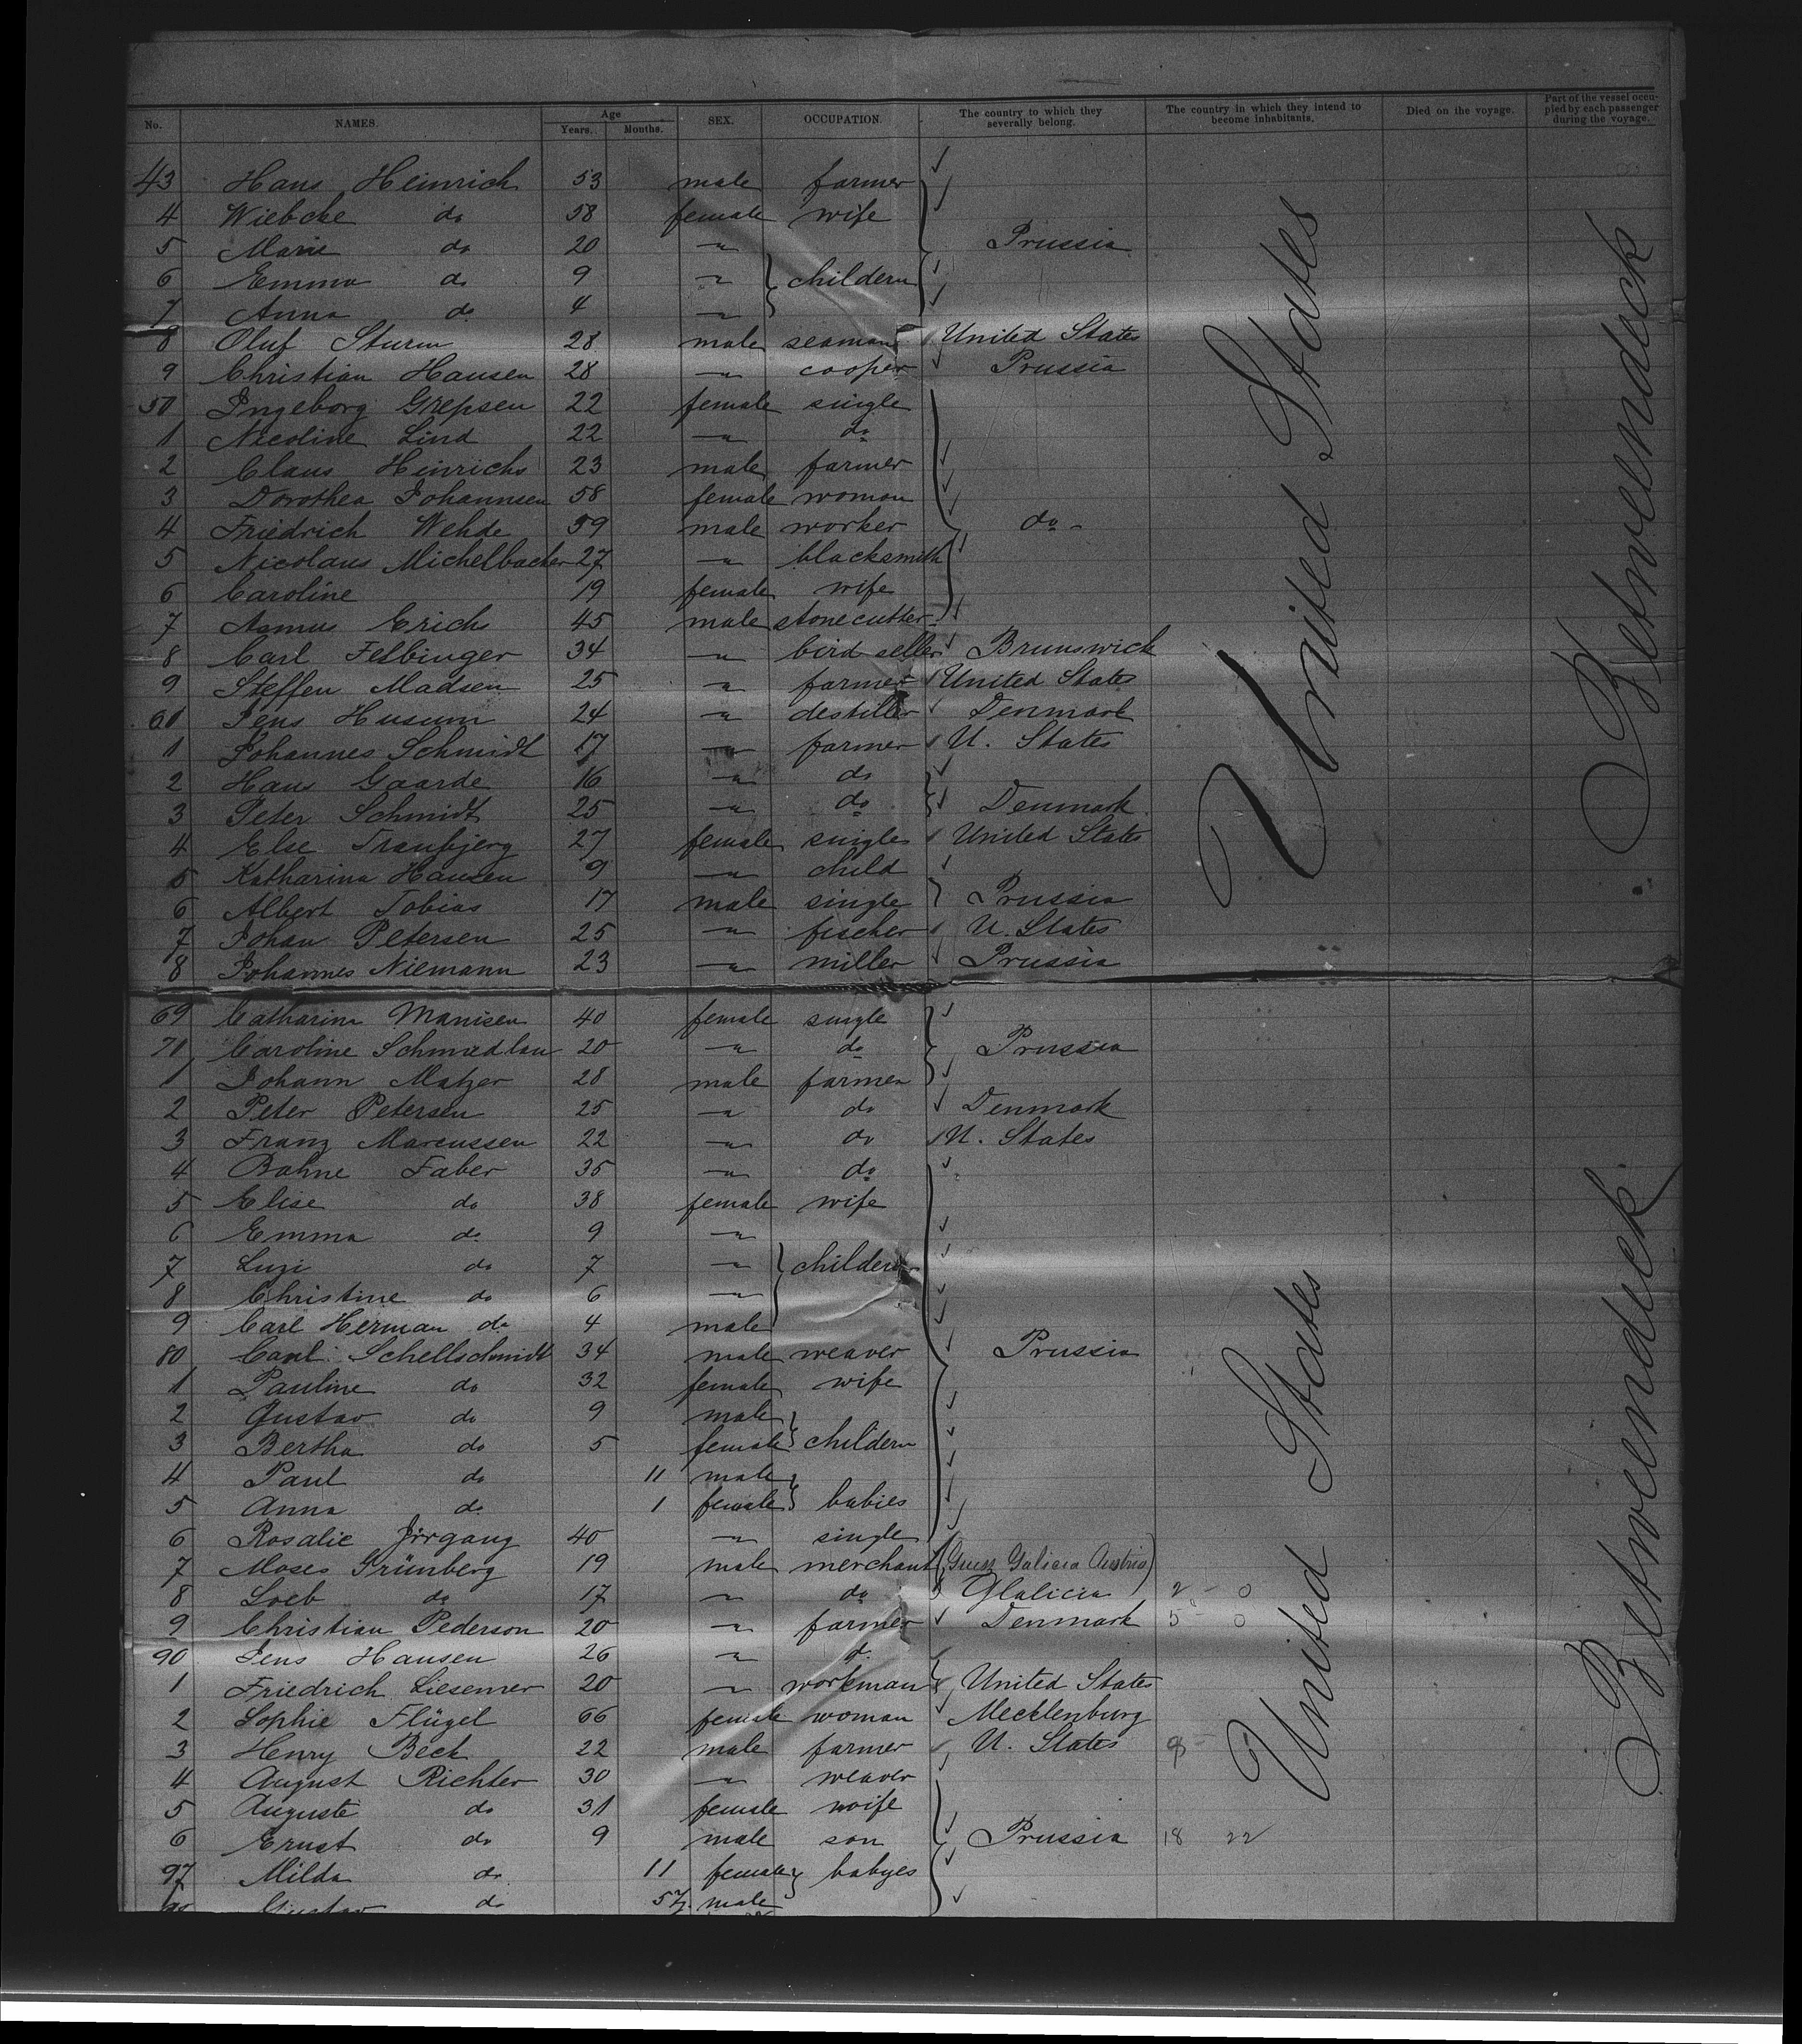 No. NAMES. Age Years. Months. SEX. OCCUPATION. The country to which they severally belong. The country in which they intend to become inhabitants. Died on the voyage. Part of the vessel occupied by each passenger during the voyage.
43 Hans Heinrich 53 male farmer
4 Wiebcke do 58 female wife
5 Marie do 20 " Prussia
6 Emma do 9 " childern
7 Anna do 4 "
8 Oluf Sturm 28 male seaman United States
9 Christian Hansen 28 " cooper Prussia
50 Ingeborg Grepsen 22 female single
1 Nicoline Lind 22 " do
2 Claus Hinrichs 23 male farmer
3 Dorothea Johannsen 58 female woman
4 Friedrich Wehde 59 male worker do
5 Nicolaus Michelbacher 27 " blacksmith
6 Caroline 19 female wife
7 Asmus Erichs 45 male stonecutter
8 Carl Felbinger 34 " bird seller Brunswick
9 Steffen Madsen 25 " farmer United States
60 Jens Husum 24 " destiller Denmark
1 Johannes Schmidt 17 " farmer U. States
2 Hans Gaarde 16 " do
3 Peter Schmidt 25 " do Denmark
4 Else Tranbjerg 27 female single United States
5 Katharina Hansen 9 " child
6 Albert Tobias 17 male single Prussia
7 Johan Petersen 25 " fischer U. States
8 Johannes Niemann 23 " miller Prussia
United States
Betweendeck
69 Catharina Manisen 40 female single
70 Caroline Schmedlau 20 " do Prussia
1 Johann Matzer 28 male farmer
2 Peter Petersen 25 " do Denmark
3 Franz Marcussen 22 " do U. States
4 Bohne Faber 35 " do
5 Elise do 38 female wife
6 Emma do 9 "
7 Luzi do 7 " childern
8 Christine do 6 "
9 Carl Herman do 4 male
80 Carl Schellschmidt 34 male weaver Prussia
1 Pauline do 32 female wife
2 Gustav do 9 male
3 Bertha do 5 female childern
4 Paul do 11 male
5 Anna do 1 female babies
6 Rosalie Jrrgang 40 " single
7 Moses Grünberg 19 male merchant (Guess Galicia Austria)
8 Loeb do 17 " do Glalicia 2 - 0
9 Christian Pederson 20 " farmer Denmark 5 - 0
90 Jens Hansen 26 " d.
1 Friedrich Liesemer 20 " workman United States
2 Sophie Flügel 66 female woman Mecklenburg
3 Henry Beck 22 male farmer U. States
4 August Richter 30 " weaver
5 Auguste do 31 female woife
6 Ernst do 9 male son Prussia 18 22
97 Milda do 11 female babyes
Gustav do male
United States
Betweendeck